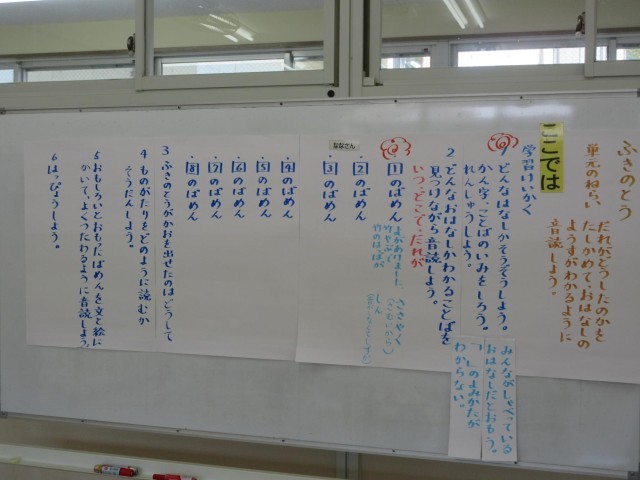 ふきのとう
単元のねらい
だれがどうしたのかを
たしかめて、おはなしの
ようすがわかるように
音読しよう。
ここでは
学習けいかく
どんなはなしかそうぞうしよう。
かん字、ことばのいみをしろう。
れんしゅうしよう。
みんながしゃべっている
おはなしだとおもう。
「」のよみかたが
わからない。
2 どんなおはなしかわかることばを
見つけながら音読しよう。
いつ、どこで、だれが
・1のばめん
よがあけました
竹やぶの
竹のはっぱが
ささやく
しん
・2のばめん
ななさん
・3のばめん
・4のばめん
・5のばめん
・6のばめん
・7のばめん
・8のばめん
3 ふきのとうがかおを出したのはどうして
4 ものがたりをどのように読むか
そうだんしよう。
5 おもしろいとおもったばめんを文と絵に
かいて、よくつたわるように音読しよう。
6 はっぴょうしよう。